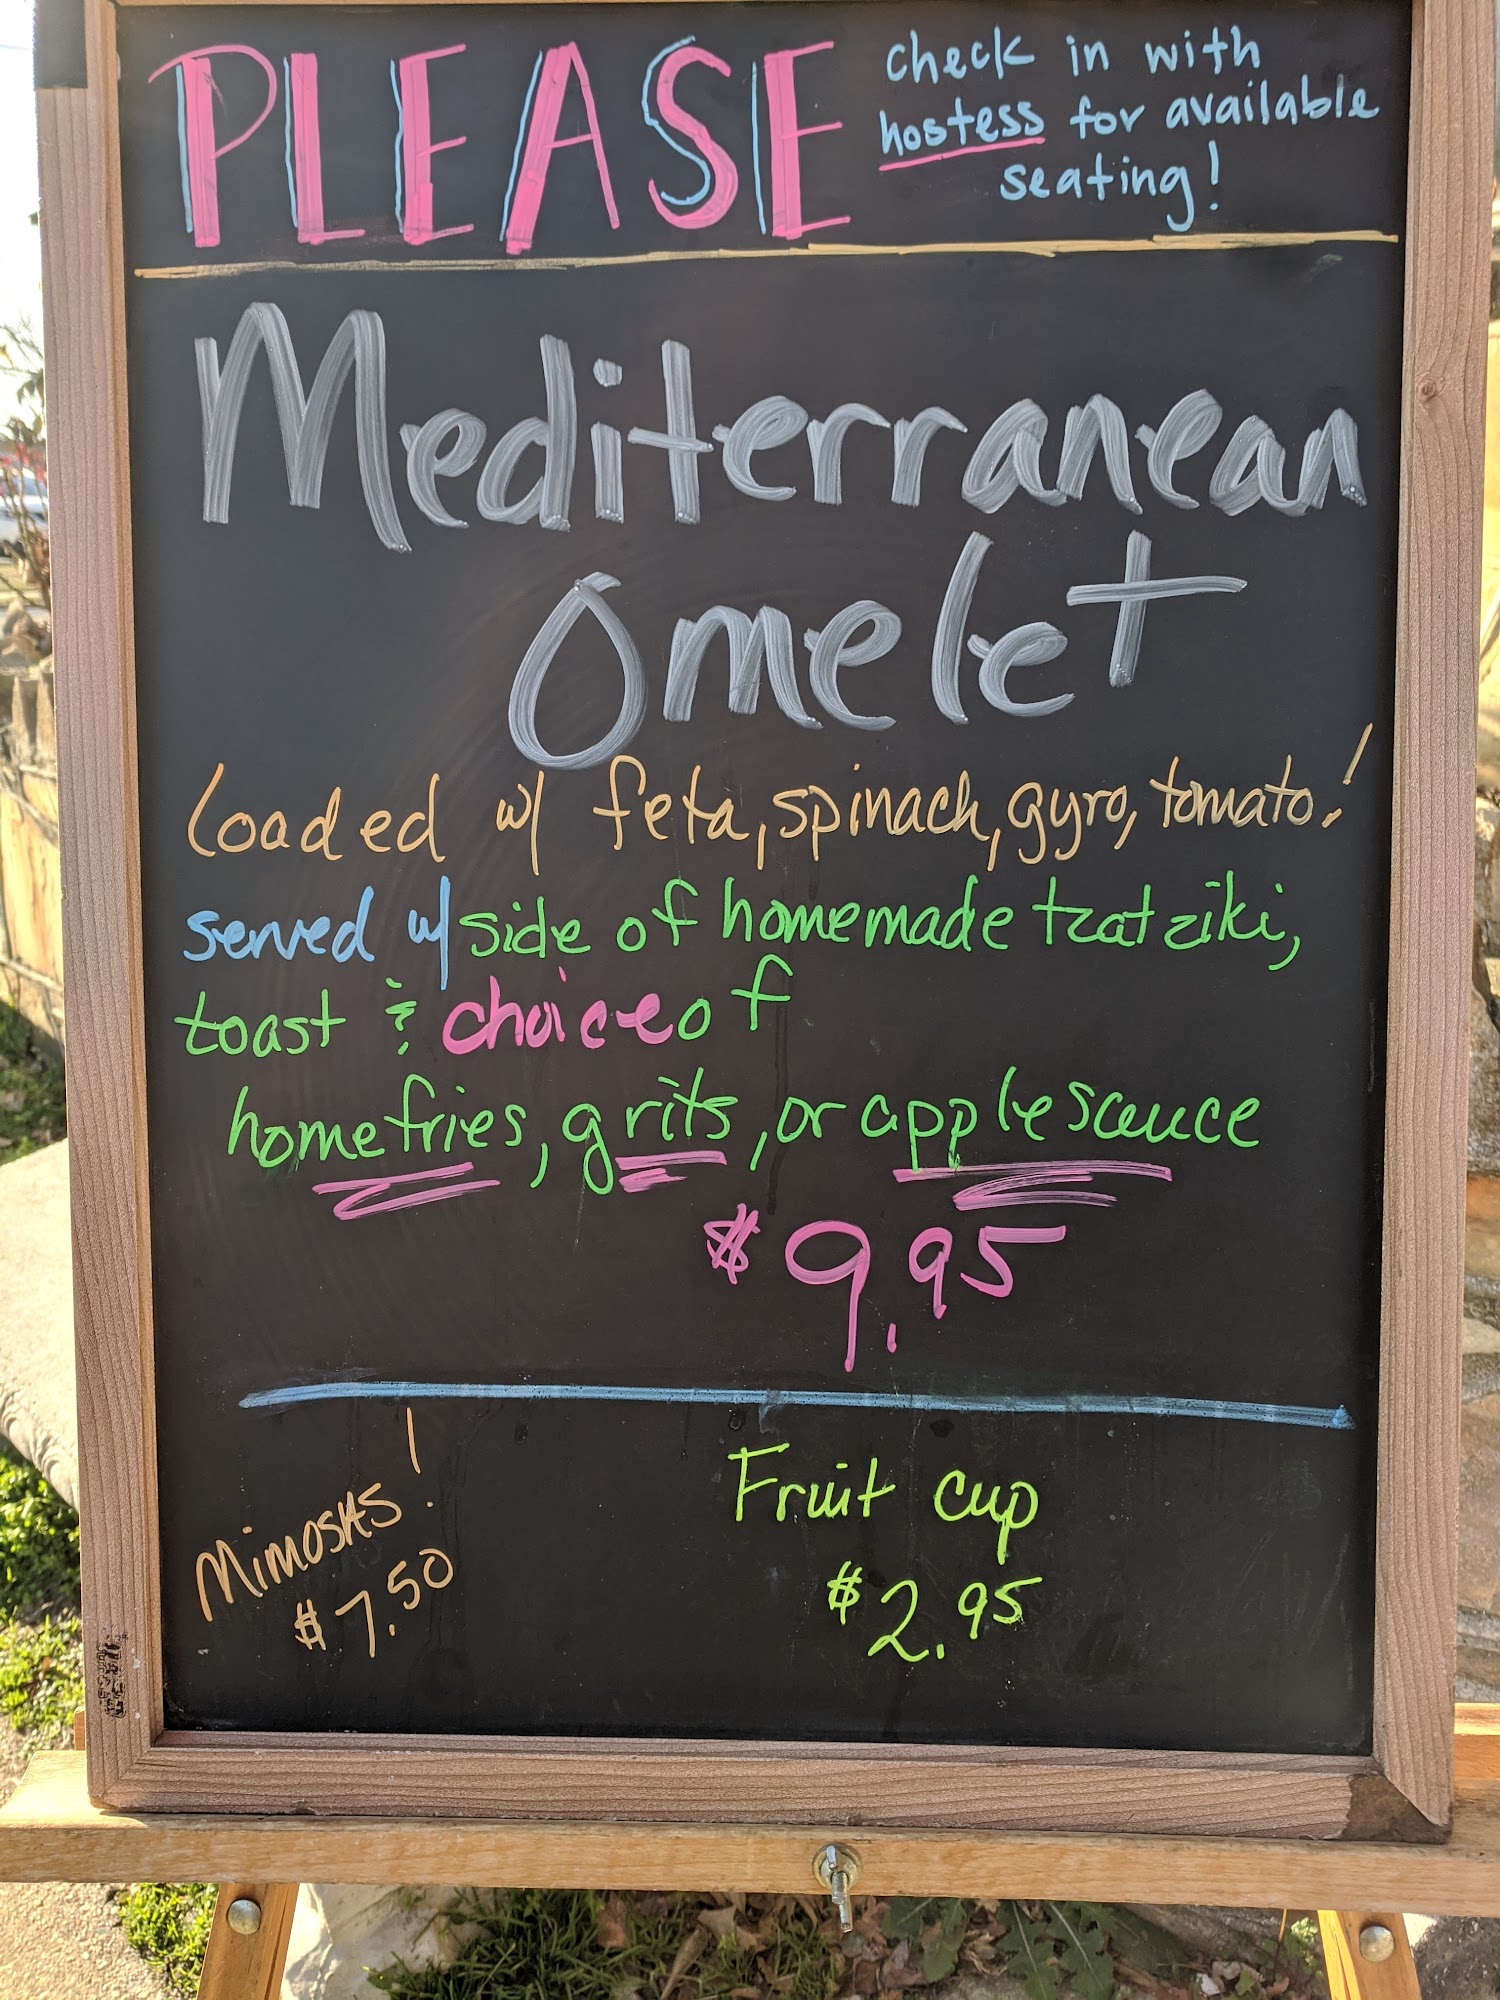 PLEASE check in with
hostess for available
seating!
Mediterranean
Omelet
Loaded w/ feta, spinach, gyro, tomato!
served w/ side of homemade tzatziki,
toast & choice of
homefries, grits, or applesauce
$9.95
Mimosas!
$7.50
Fruit cup
$2.95